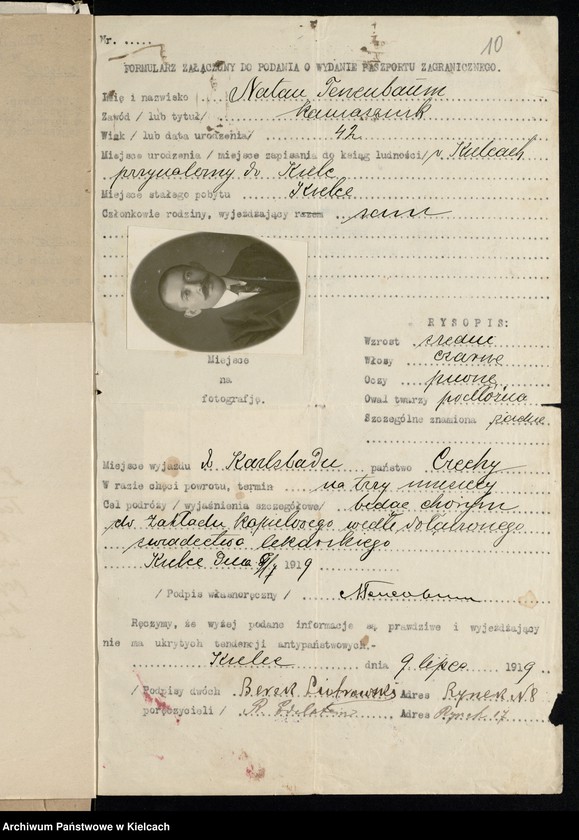 Nr. .....
10
FORMULARZ ZAŁĄCZONY DO PODANIA O WYDANIE PASZPORTU ZAGRANICZNEGO.
Imię i nazwisko Natan Tenenbaum
Zawód / lub tytuł/ kamasznik
Wiek / lub data urodzenia/ 42
Miejsce urodzenia / miejsce zapisania do ksiąg ludności/ w Kielcach
przynależny do Kielc
Miejsce stałego pobytu Kielce
Członkowie rodziny, wyjeżdżający razem sam
RYSOPIS:
Wzrost średni
Włosy czarne
Oczy piwne
Owal twarzy podłużna
Szczególne znamiona żadne
Miejsce
na
fotografję.
Miejsce wyjazdu do Karlsbadu państwo Czechy
W razie chęci powrotu, termin na trzy miesięcy
Cel podróży / wyjaśnienia szczegółowe/ będąc chorym
do Zakładu Kąpielowego wedle dołączonego
świadectwa lekarskiego
Kielce Dnia 9/7 1919
/ Podpis własnoręczny / NTenenbaum
Ręczymy, że wyżej podane informacje są prawdziwe i wyjeżdżający
nie ma ukrytych tendencji antypaństwowych.-
Kielce dnia 9 lipca 1919
/ Podpisy dwóch Berek Piotrowski Adres Rynek N. 8
poręczycieli / Adres Rynek 17
Archiwum Państwowe w Kielcach